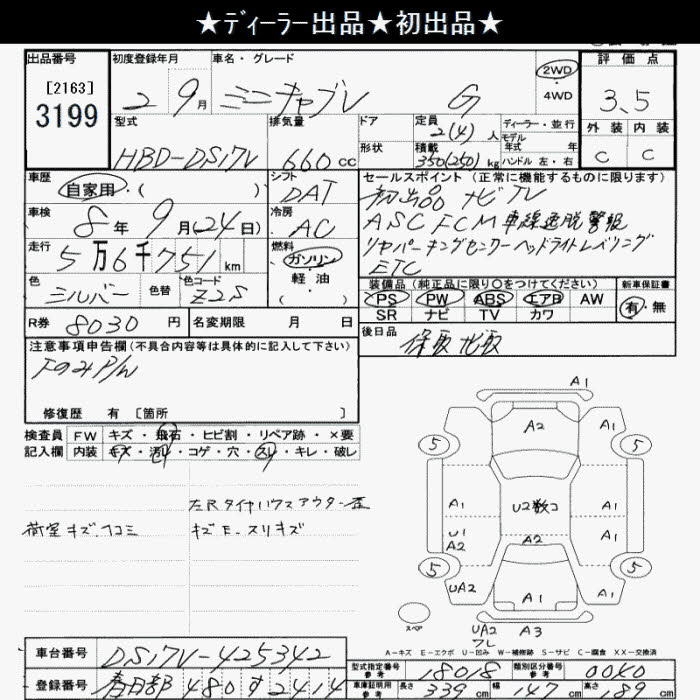 ★ディーラー出品★初出品★
出品番号
[2163]
3199
初度登録年月
2 9月
車名・グレード
ミニキャブV G
2WD
・
4WD
評価点
3.5
外装 内装
C C
型式
HBD-DS17V
排気量
660cc
ドア
形状
定員
2(4)人
積載
350(250)kg
ディーラー・並行
モデル
年式 年
ハンドル 左・右
車歴
自家用・( )
シフト
DAT
車検
8年9月(24日)
冷房
AC
走行
5万6千751km
燃料
ガソリン
・
軽油
( )
色
シルバー
色替
色コード
Z2S
R券 8030円
名変期限 月 日
セールスポイント(正常に機能するものに限ります)
初出品 ナビTV
ASC FCM 車線逸脱警報
リヤパーキングセンサーヘッドライトレベリング
ETC
装備品(純正品に限り○をつけてください)
PS PW ABS エアB AW
SR ナビ TV カワ
新車保証書
有・無
後日品
保取 記取
注意事項申告欄(不具合内容等は具体的に記入して下さい)
下のみP/W
修復歴 有 [箇所 ]
検査員
記入欄
FW キズ・飛石・ヒビ割・リペア跡・×要
内装 キズ・汚レ・コゲ・穴・スレ・キレ・破レ
荷室キズ、凹コミ
左Rタイヤハウスアウター歪
キズE、スリキズ
A1
A2
A1
5
5
A1
U2数コ
A1
U1
A2
A2
A1
5
5
UA2
A1
A1
スペア
UA2
フレ
A3
A-キズ E-エクボ U-凹み W-補修跡 S-サビ C-腐食 XX-交換済
車台番号 DS17V-425342
登録番号 春日部 480 す 2414
型式指定番号
参考
18018
類別区分番号
参考
0040
車庫証明用
参考
長さ 339cm
幅 147cm
高さ 189cm